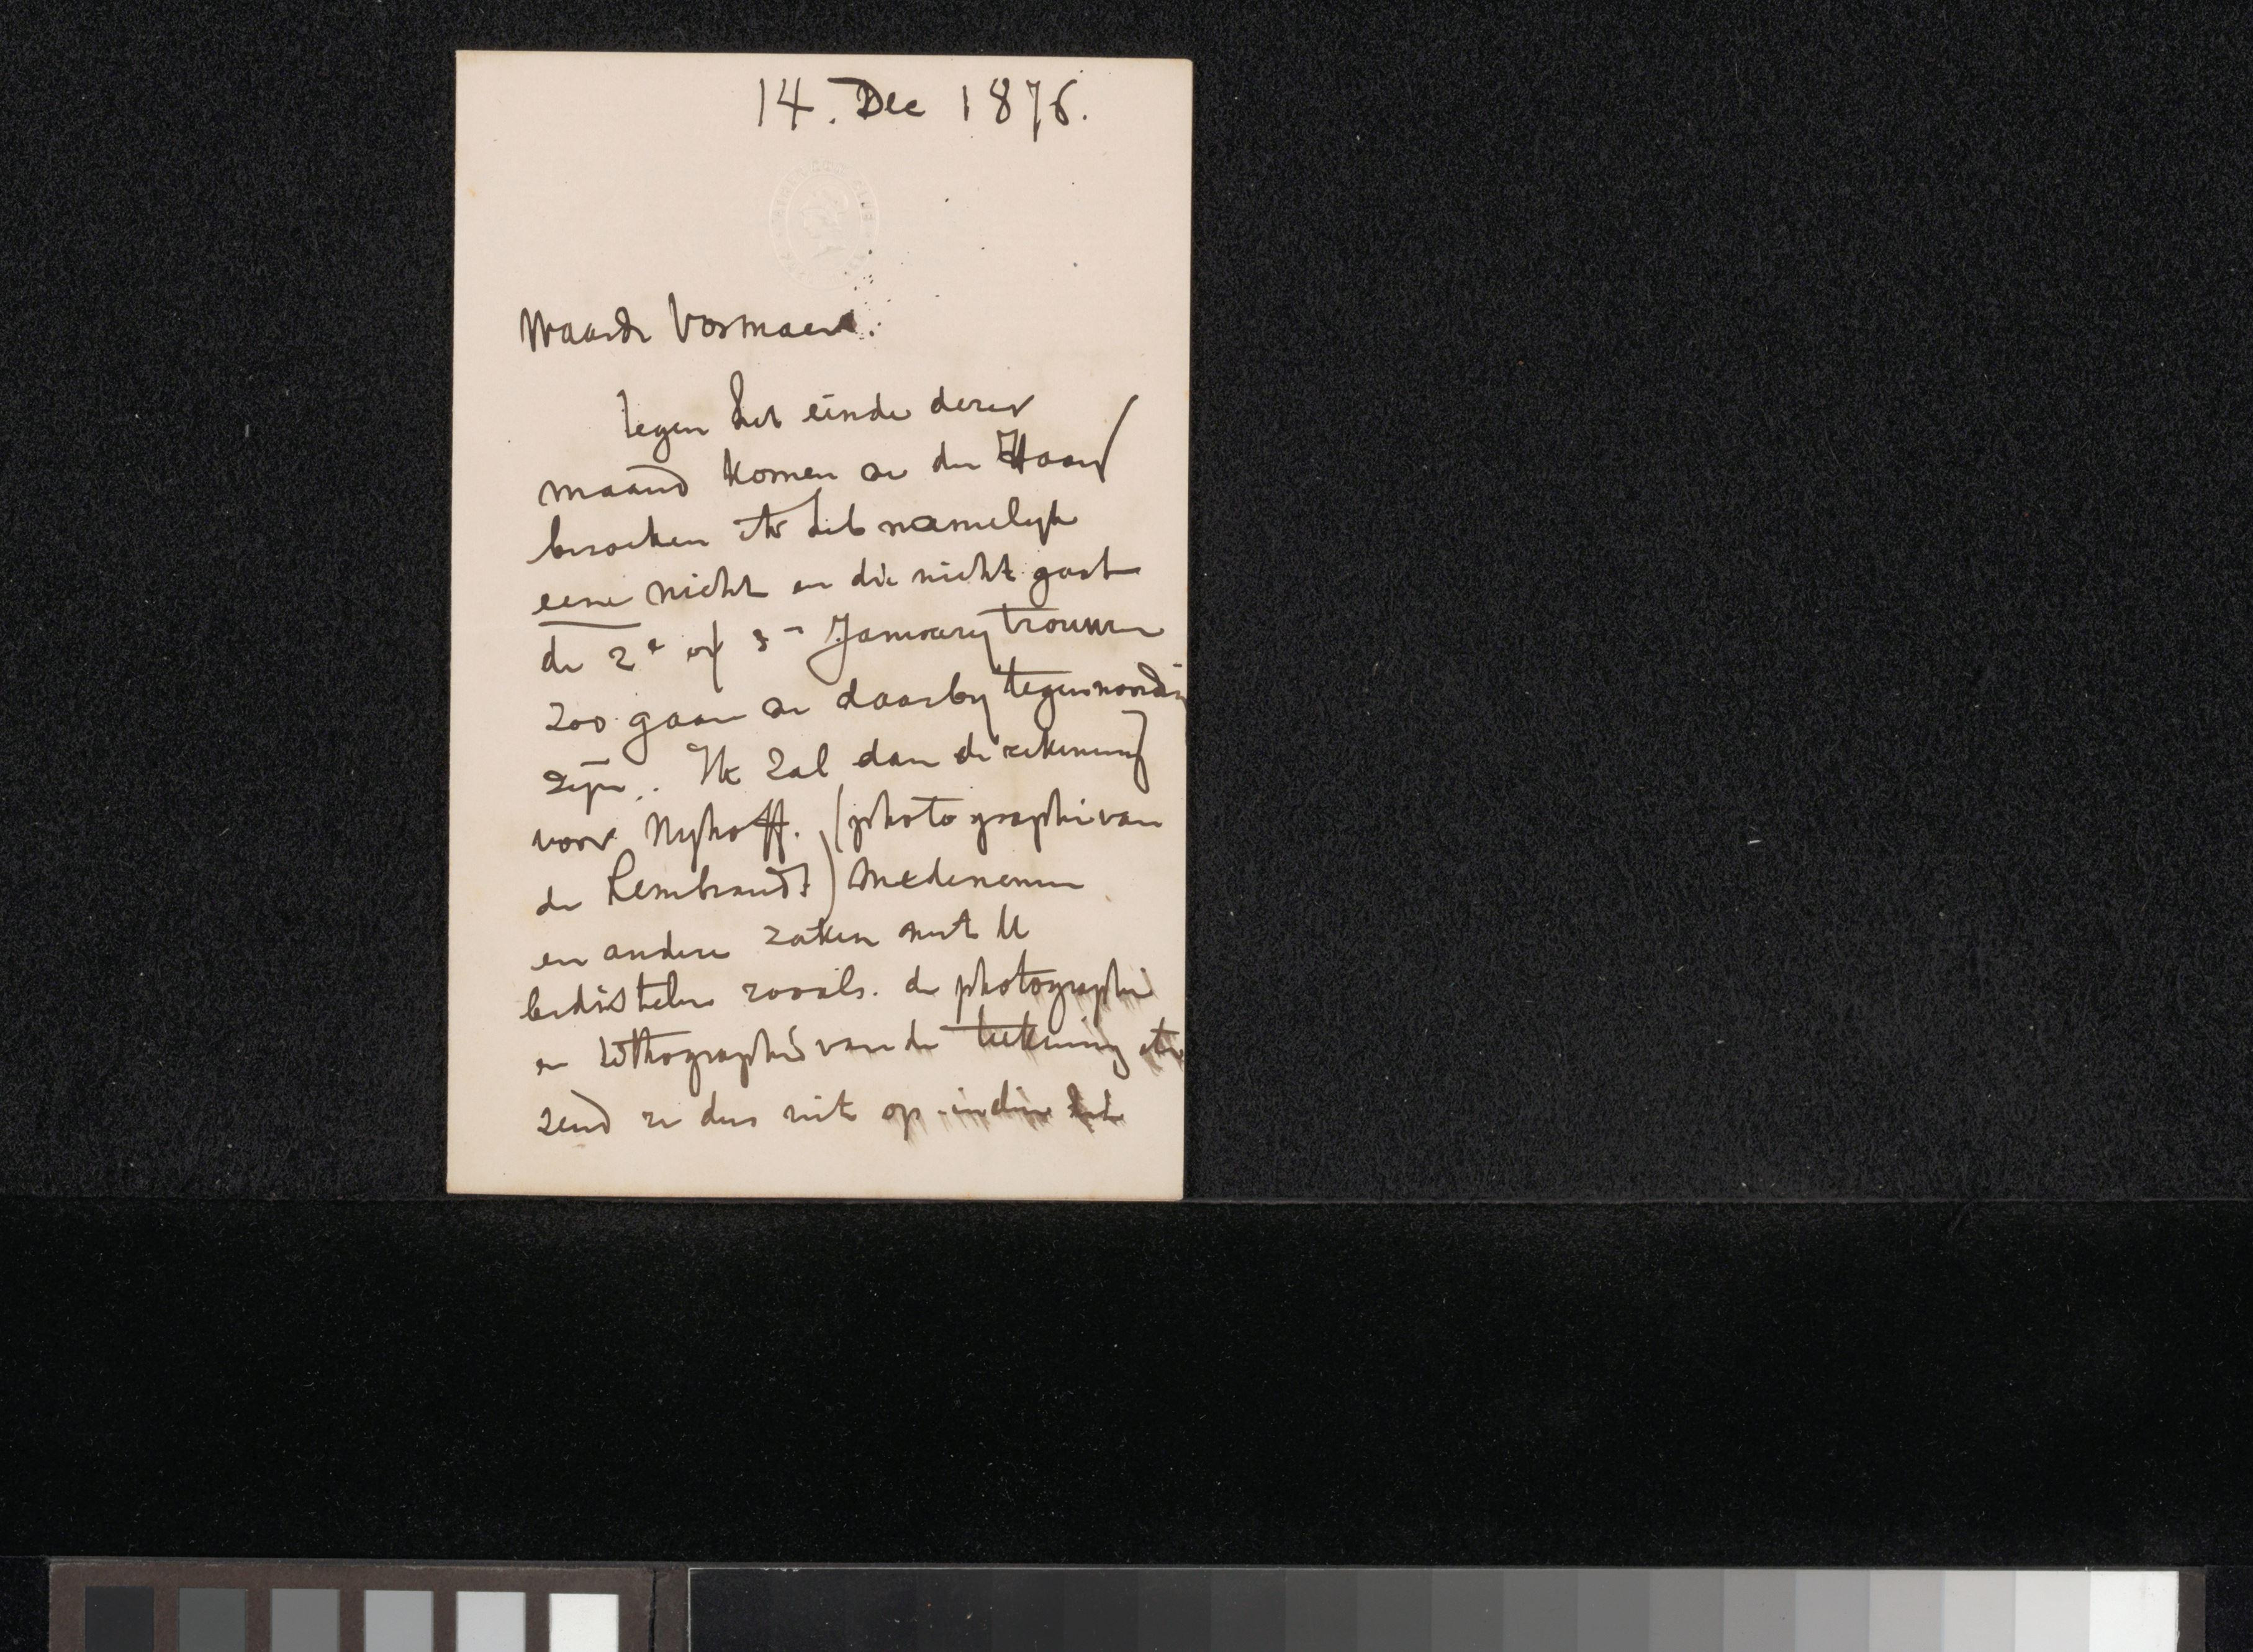 14. Dec 1876.
Waarde Vosmaer.
tegen het einde dezer
maand komen we den Haag
bezoeken ik heb namelyk
eene nicht en die nicht gaat
de 2e of 3e January trouwen
zoo gaan we daarby tegenwoordig
zyn.. Ik zal dan de rekening
voor Nyhoff. (photographie van
de Rembrandt) medenemen
en andere zaken met U
bedistelen zooals. de photographie
en lithographie van de teekening ik
zend ze dus niet op indien het